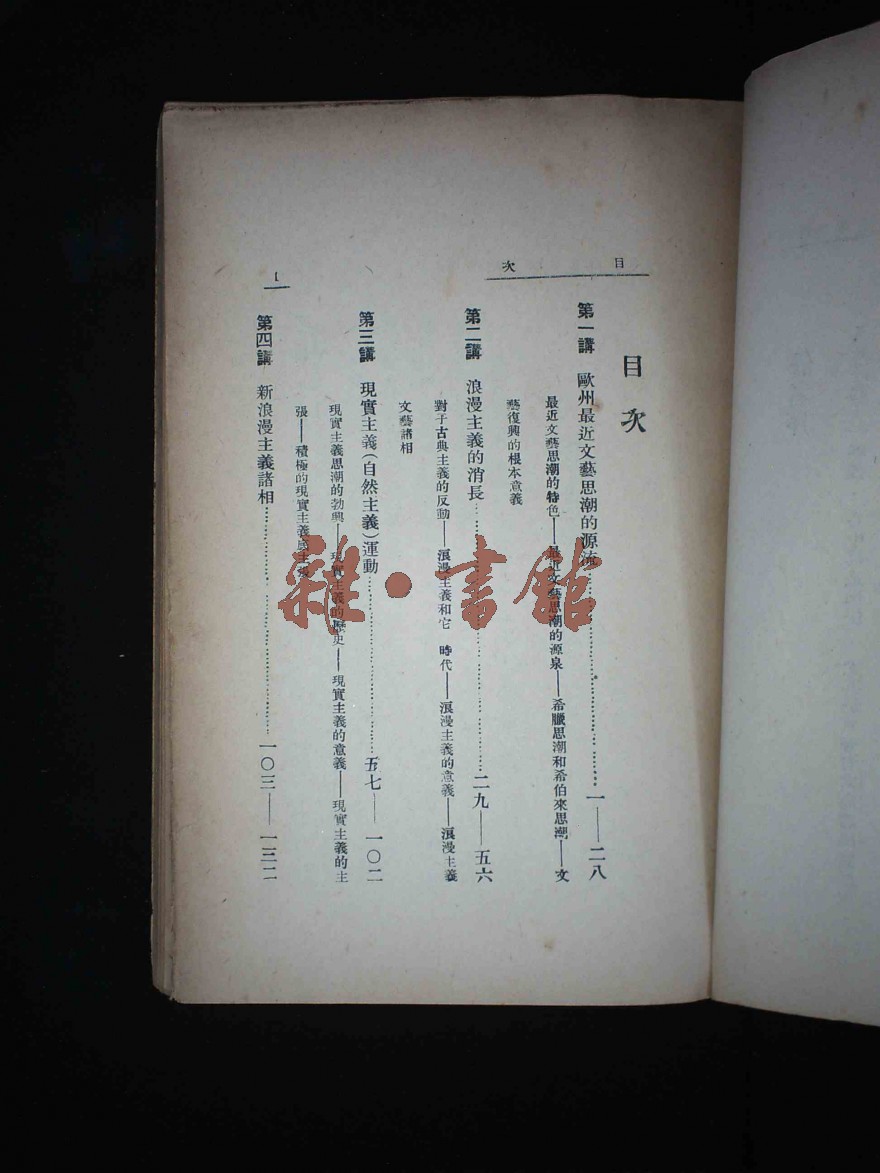 目次
1
目次
第一講　歐州最近文藝思潮的源流……一——二八
最近文藝思潮的特色——最近文藝思潮的源泉——希臘思潮和希伯來思潮——文
藝復興的根本意義
第二講　浪漫主義的消長……二九——五六
對于古典主義的反動——浪漫主義和它　時代——浪漫主義的意義——浪漫主義
文藝諸相
第三講　現實主義(自然主義)運動……五七——一〇二
現實主義思潮的勃興——現實主義的歷史——現實主義的意義——現實主義的主
張——積極的現實主義
第四講　新浪漫主義諸相……一〇三——一三二
雜·書館